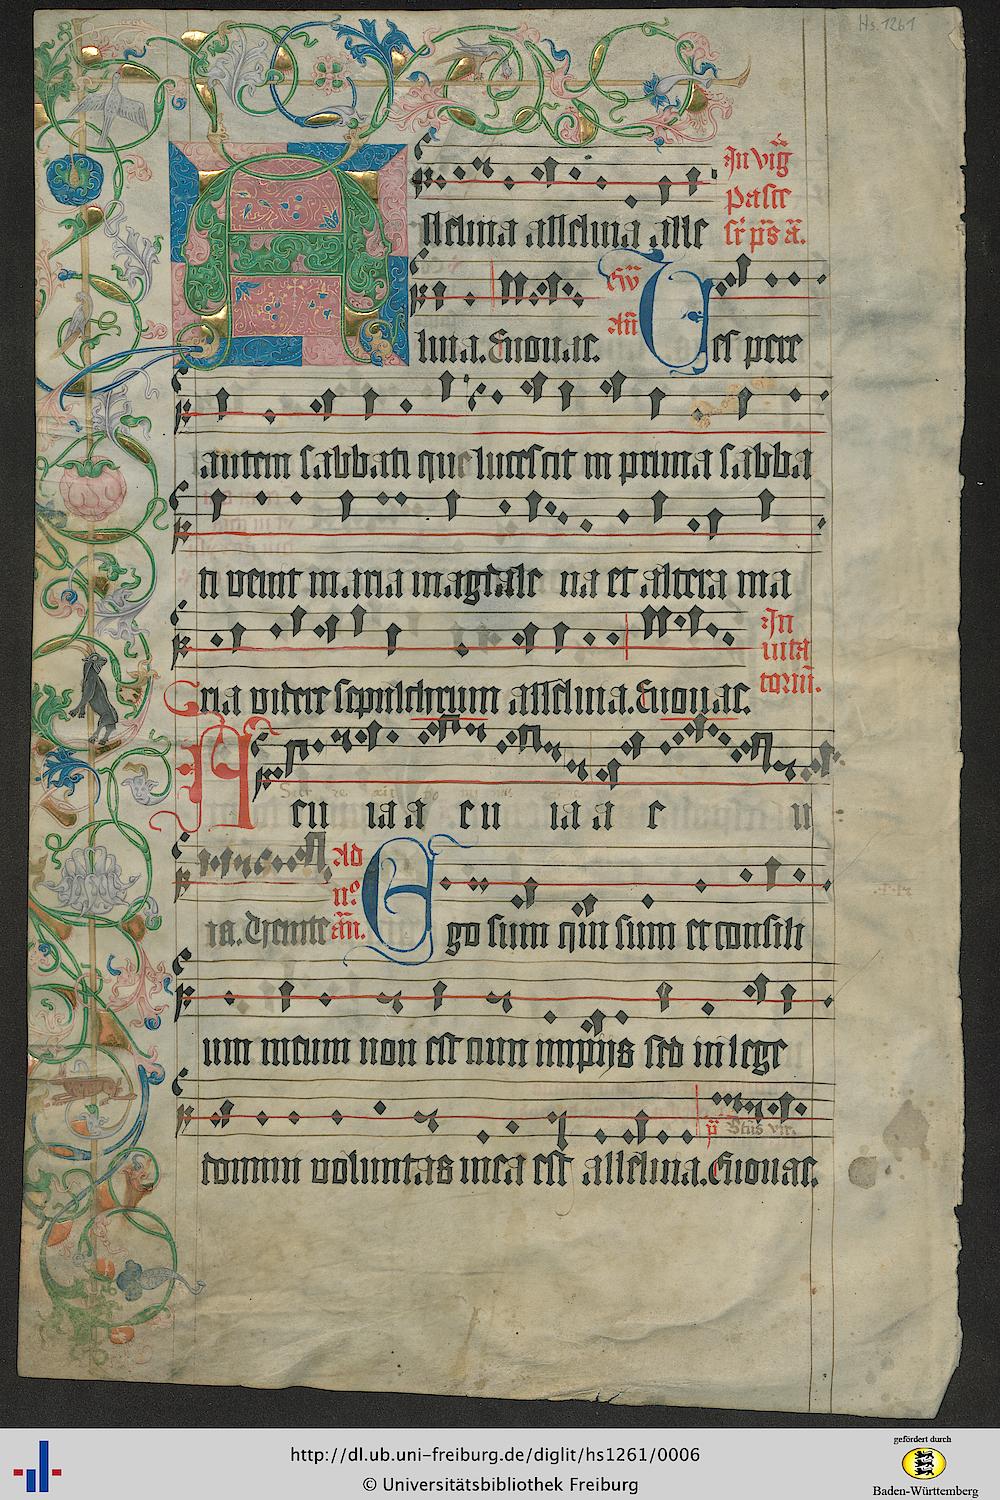 Hs. 1261
In vig̅
Alleluia alleluia alle
pasce
luia. Euouae.
Ew̅
An̅
Vespere
autem sabbati que lucescit in prima sabba
ti venit maria magdale na et altera ma
ria videre sepulchrum alleluia. Euouae.
In
uita
toriu̅.
A eu ia a eu ia a e u
ia. Venite
Ad
n°
an̅.
Ego sum qui sum et consili
um meum non est cum impijs sed in lege
p̅ Btūs vir.
domini voluntas mea est alleluia. Euouae.
http://dl.ub.uni-freiburg.de/diglit/hs1261/0006
© Universitätsbibliothek Freiburg
gefördert durch
Baden-Württemberg